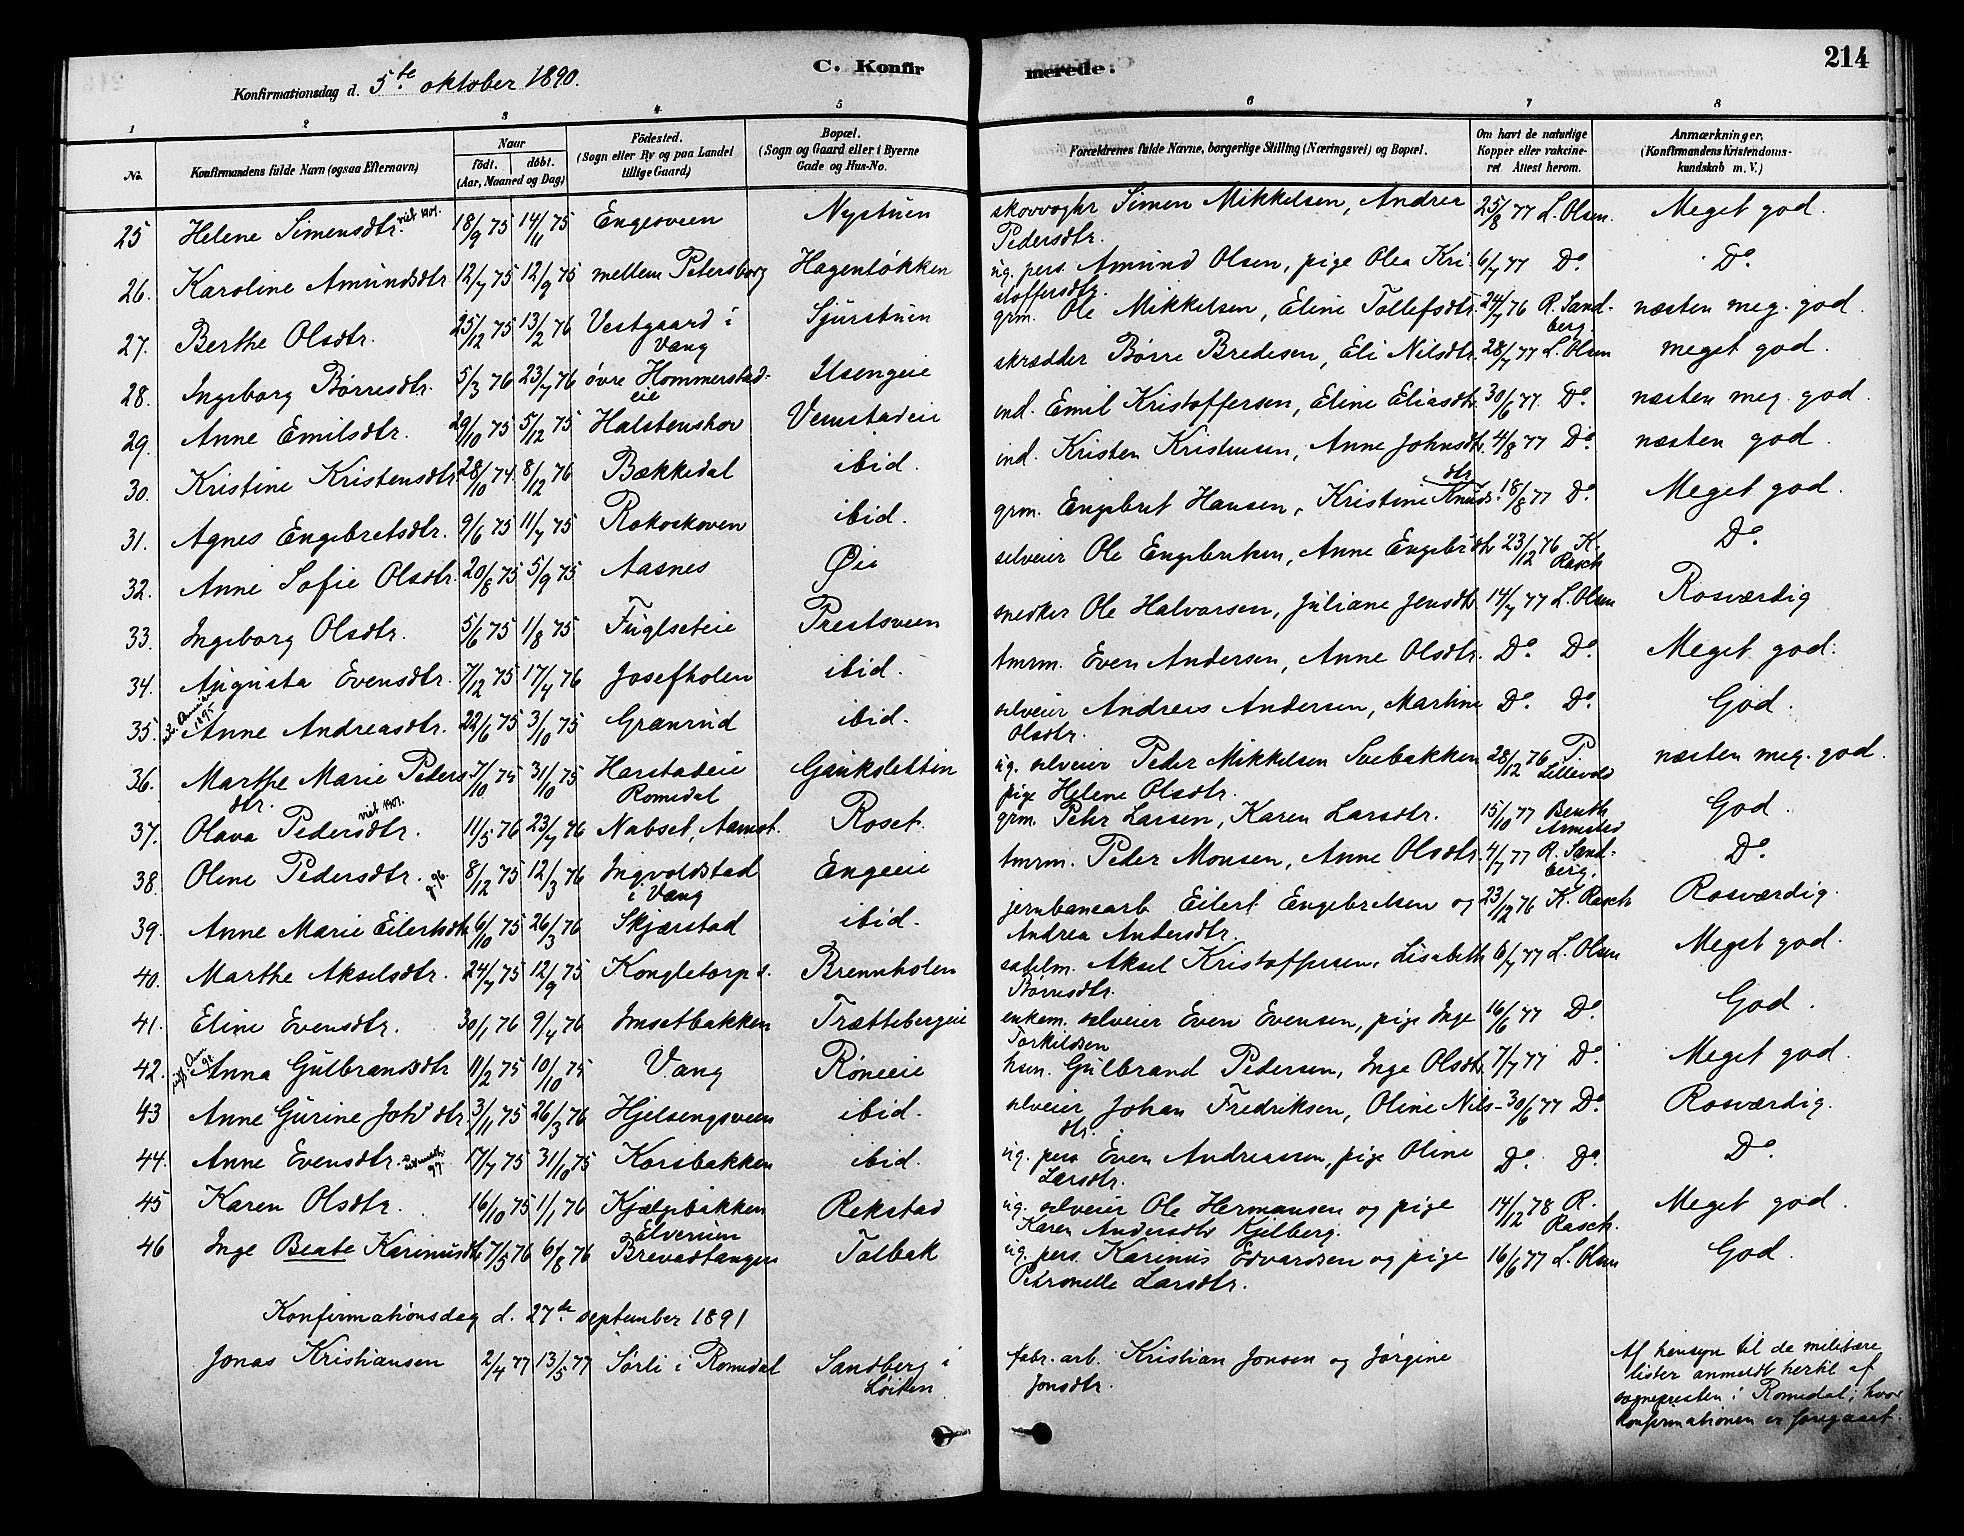 214
C. Konfirmerede.
Konfirmationsdag d. 5te oktober 1890.
1 2 3 4 5 6 7 8
No. Konfirmandens fulde Navn (ogsaa Efternavn) Naar født. døbt. (Aar, Maaned og Dag) Födested. (Sogn eller By og paa Landet tillige Gaard.) Bopæl. (Sogn og Gaard eller i Byerne Gade og Hus-No. Forældrenes fulde Navne, borgerlige Stilling (Næringsvei) og Bopæl. Om havt de naturlige Kopper eller vakcineret Attest herom. Anmærkninger, (Konfirmandens Kristendomskundskab m. V.)
25 Helene Simensdtr. viet 1901. 18/9 75 14/11 75 Engesveen Nystuen skovvogtr Simen Mikkelsen, Andrea Pedersdtr. 25/8 77 L. Olsen. Meget god.
26. Karoline Amundsdtr. 12/7 75 12/9 75 mellem Petersborg Hagenløkken ug. pers. Amund Olsen, pige Olea Kristoffersdtr. 6/7 77 Do. Do.
27. Berthe Olsdtr. 25/12 75 13/2 76 Vestgaard i Vang Sjurstuen grm. Ole Mikkelsen, Eline Tollefsdtr. 24/7 76 R. Sandberg. næsten meg. god.
28. Ingeborg Børresdtr. 5/3 76 23/7 76 øvre Hommerstadeie Ilsengeie skrædder Børre Bredesen, Eli Nilsdtr. 28/7 77 L. Olsen meget god.
29. Anne Emilsdtr. 29/10 75 5/12 75 Halstenshov Vemstadeie ind. Emil Kristoffersen, Eline Eliasdtr. 30/6 77 Do. næsten meg. god.
30. Kristine Kristensdtr. 28/10 74. 8/12 76 Bækkedal ibid. ind. Kristen Kristensen, Anne Johnsdtr. 4/8 77 Do næsten god.
31. Agnes Engebretsdtr. 9/6 75 11/7 75 Rokoskoven ibid. grm. Engebret Hansen, Kristine Knudsdtr. 18/8 77 Do. Meget god.
32. Anne Sofie Olsdtr. 20/8 75 5/9 75 Aasnes Øie selveier Ole Engebretsen, Anne Engebrdtr 23/12 76 K. Rasch Do.
33. Ingeborg Olsdtr. 5/6 75 1/8 75 Fuglseteie Prestsveen snedker Ole Halvorsen, Juliane Jensdtr 14/7 77 L. Olsen Rosværdig
34. Augusta Evensdtr. 7/12 75 17/4 76 Josefholen ibid. tmrm. Even Andersen, Anne Olsdtr. Do. Do. Meget god.
35. Anne Andreasdtr. 22/6 75 3/10 75 Granrud ibid. selveier Andreas Andersen, Martine Olsdtr. Do. Do. God.
36. Marthe Marie Pedersdtr. 7/10 75 31/10 75 Harstadeie Romedal Gaukslettin ug. selveier Peder Mikkelsen Svebakken pige Helene Olsdtr. 28/12 76 P. Lillevold næsten meg. god.
37. Olava Pedersdtr. viet 1901. 11/5 76 23/7 76 Nabset, Aamot. Roset. grm. Peter Larsen, Karen Larsdtr. 15/10 77 Benth Armsted God.
38 Oline Pedersdtr. 8/12 75 12/3 76 Ingvoldstad i Vang Engeeie tmrm. Peder Monsen, Anne Olsdtr. 4/7 77 R. Sandberg. Do.
39. Anne Marie Eilertsdtr. 6/10 75 26/3 76 Skjærstad ibid. jernbanearb Eilert Engebretsen og Andrea Andersdtr. 23/12 76 K. Rasch Rosværdig.
40. Marthe Akselsdtr. 24/7 75 12/9 75 Kongletorp s. Brennholen sadelm. Aksel Kristoffersen, Lisabeth Børresdtr. 6/7 77 L. Olsen Meget god.
41. Eline Evensdtr. 30/1 76 9/4 76 Imsetbakken Trættebergeie enkem. selveier Even Evensen, pige Inge Torkildsen 16/6 77 Do. God.
42. Anna Gulbrandsdtr 11/2 75 10/10 75 Vang Røneeie hsm. Gulbrand Pedersen, Inge Olsdtr. 7/7 77 Do. Meget god.
43 Anne Gurine Johsdtr. 3/11 75 26/3 76 Hjelsengsveen ibid. selveier Johan Fredriksen, Oline Nilsdtr. 30/6 77 Do. Rosværdig.
44. Anne Evensdtr. 17/7 75 31/10 75 Korsbakken ibid. ug. pers Even Andreassen, pige Oline Larsdtr. Do. Do. Do.
45 Karen Olsdtr. 16/10 75 1/1 76 Kjølpbakken Elverum Rekstad ug. selveier Ole Hermansen og pige Karen Andersdtr Kjelberg. 14/12 78 R. Rasch. Meget god.
46 Inge Beate Karinusdtr. 7/5 76 6/8 76 Brevadtangen Tolbak ug. pers. Karinus Edvardsen og pige Petronelle Larsdtr. 16/6 77 L. Olsen God.
Konfirmationsdag d. 27de september 1891
Jonas Kristiansen 2/4 77 13/5 77 Sørli i Romedal Sandberg i Løiten fabr. arb. Kristian Jonsen og Jørgine Jonsdtr.
Af hensyn til de militære
lister anmeldt hertil af
sognepresten i Romedal, hvor
konfirmationen er foregaaet.